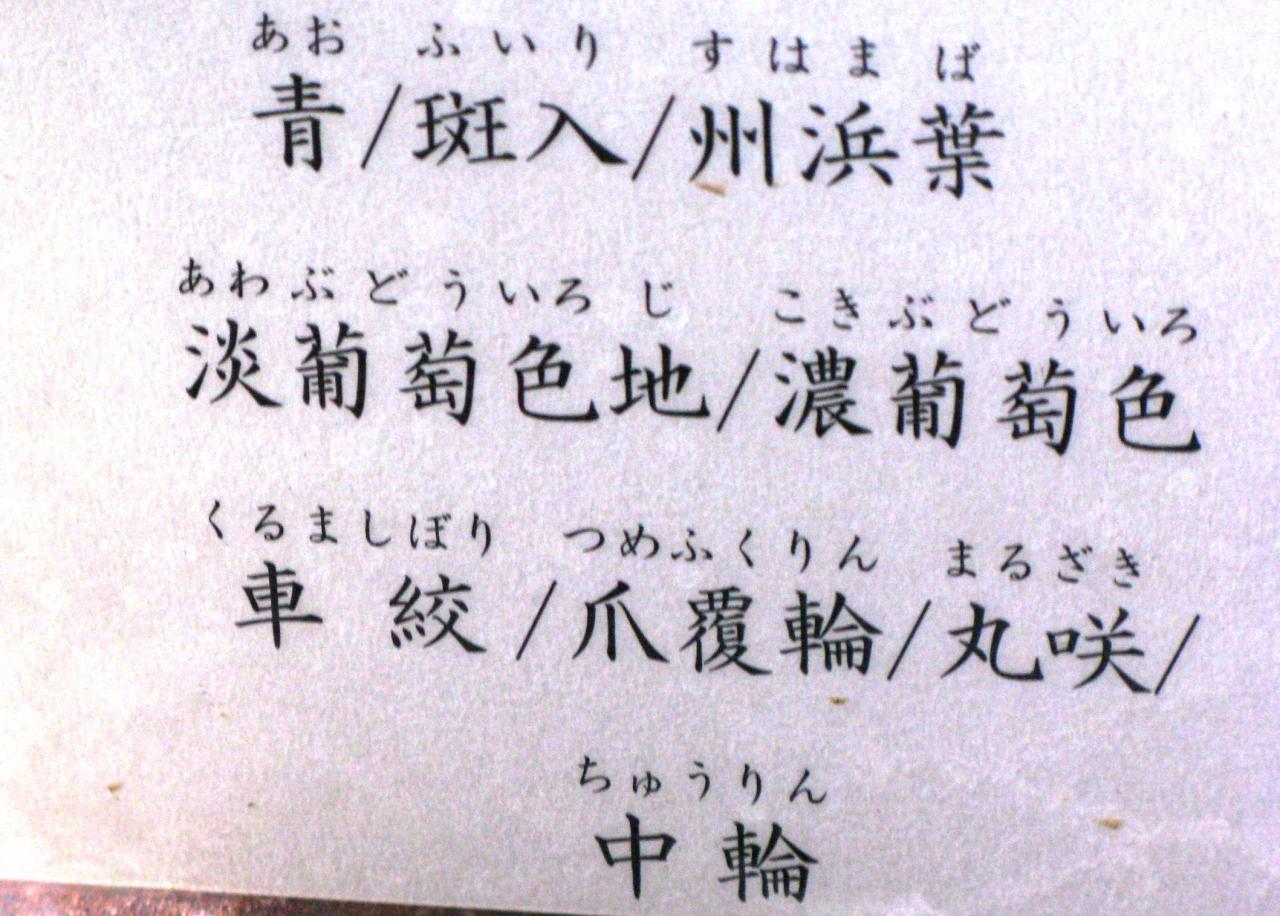 あお ふいり すはまば
青/斑入/州浜葉
あわぶどういろじ こきぶどういろ
淡葡萄色地/濃葡萄色
くるましぼり つめふくりん まるざき
車絞/爪覆輪/丸咲/
ちゅうりん
中輪